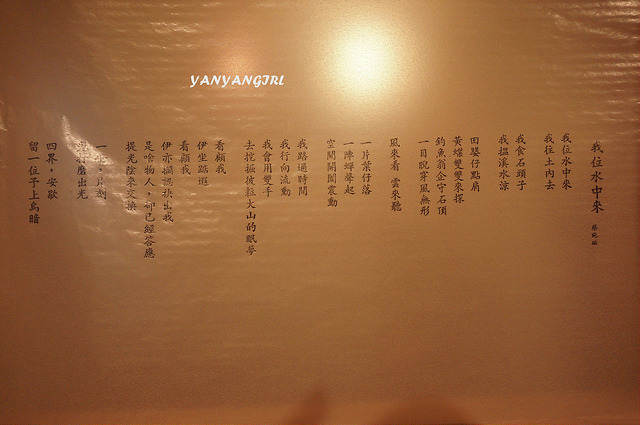 YANYANGIRL
我位水中來
蔡宛璇
我位水中來
我往土內去
我食石頭子
我搵溪水涼
田嬰仔點肩
黃蝶雙雙來探
釣魚翁企守石頂
一目睨穿風無形
風來看 雲來聽
一片葉仔落
一陣蟬聲起
空間開闔震動
我踏過時間
我行向流動
我會用雙手
去挖掘彼粒大山的眠夢
看顧我
伊坐踮遐
看顧我
伊亦捌認捒出我
是啥物人，卻已經答應
提光陰來交換
一片。片刻
打磨出光
四界，安歇
留一位予上烏暗